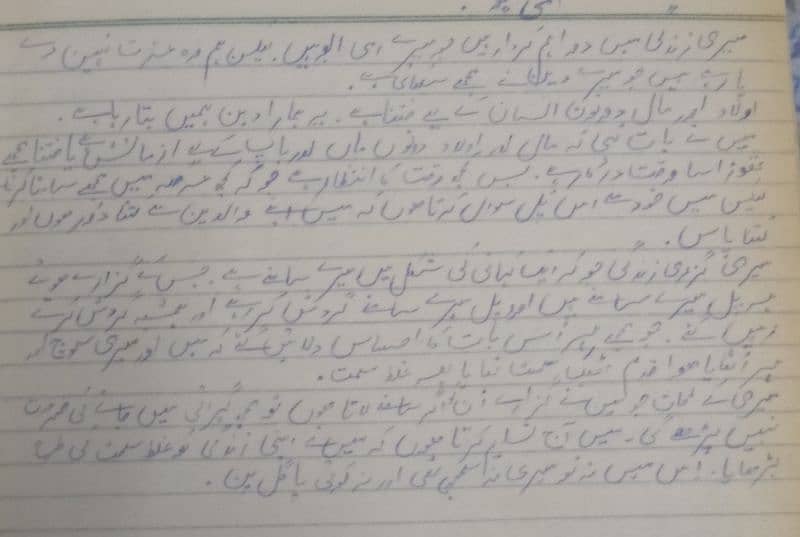 میری زندگی میں دو اہم کردار ہیں جو میرے امی ابو ہیں۔ لیکن ہم وہ عزت نہیں دے
پا رہے ہیں جو میرے دین نے مجھے سکھائی ہے۔
اولاد اور مال دونوں انسان کے لیے فتنا ہے۔ یہ ہمارا دین ہمیں بتا رہا ہے۔
میں نے بات کی کہ مال اور اولاد دونوں ماں اور باپ کے لیے آزمائش ہے یا فتنا مجھے
تھوڑا سا وقت درکار ہے۔ بس کچھ وقت کا انتظار ہے جو کہ کچھ عرصہ میں مجھے سامنا کرنا
لیکن میں خود سے اس پل سوال کرتا ہوں کہ میں اپنے والدین سے کتنا دور ہوں اور
کتنا پاس۔
میری گزری زندگی جو کہ ایک کہانی کی شکل میں میرے سامنے ہے۔ جس کے گزارے ہوئے
ہر پل میرے سامنے ہیں اور پل میرے سامنے گردش کر رہے اور ہمیشہ گردش کرتے
رہیں گے۔ جو مجھے ہر اس بات کا احساس دلائیں گے کہ میں اور میری سوچ اور
میرا اٹھایا ہوا قدم ٹھیک سمت تھا یا غلط سمت۔
میری کے لمحات جو میں نے گزارے ان کو اگر سامنے لاتا ہوں تو مجھے گہرائی میں جانے کی ضرورت
نہیں پڑے گی۔ میں آج تسلیم کرتا ہوں کہ میں نے اپنی زندگی کو غلط سمت کی طرف
بڑھایا۔ اس میں نہ تو میری نا سمجھی تھی اور نہ کوئی پاگل پن۔